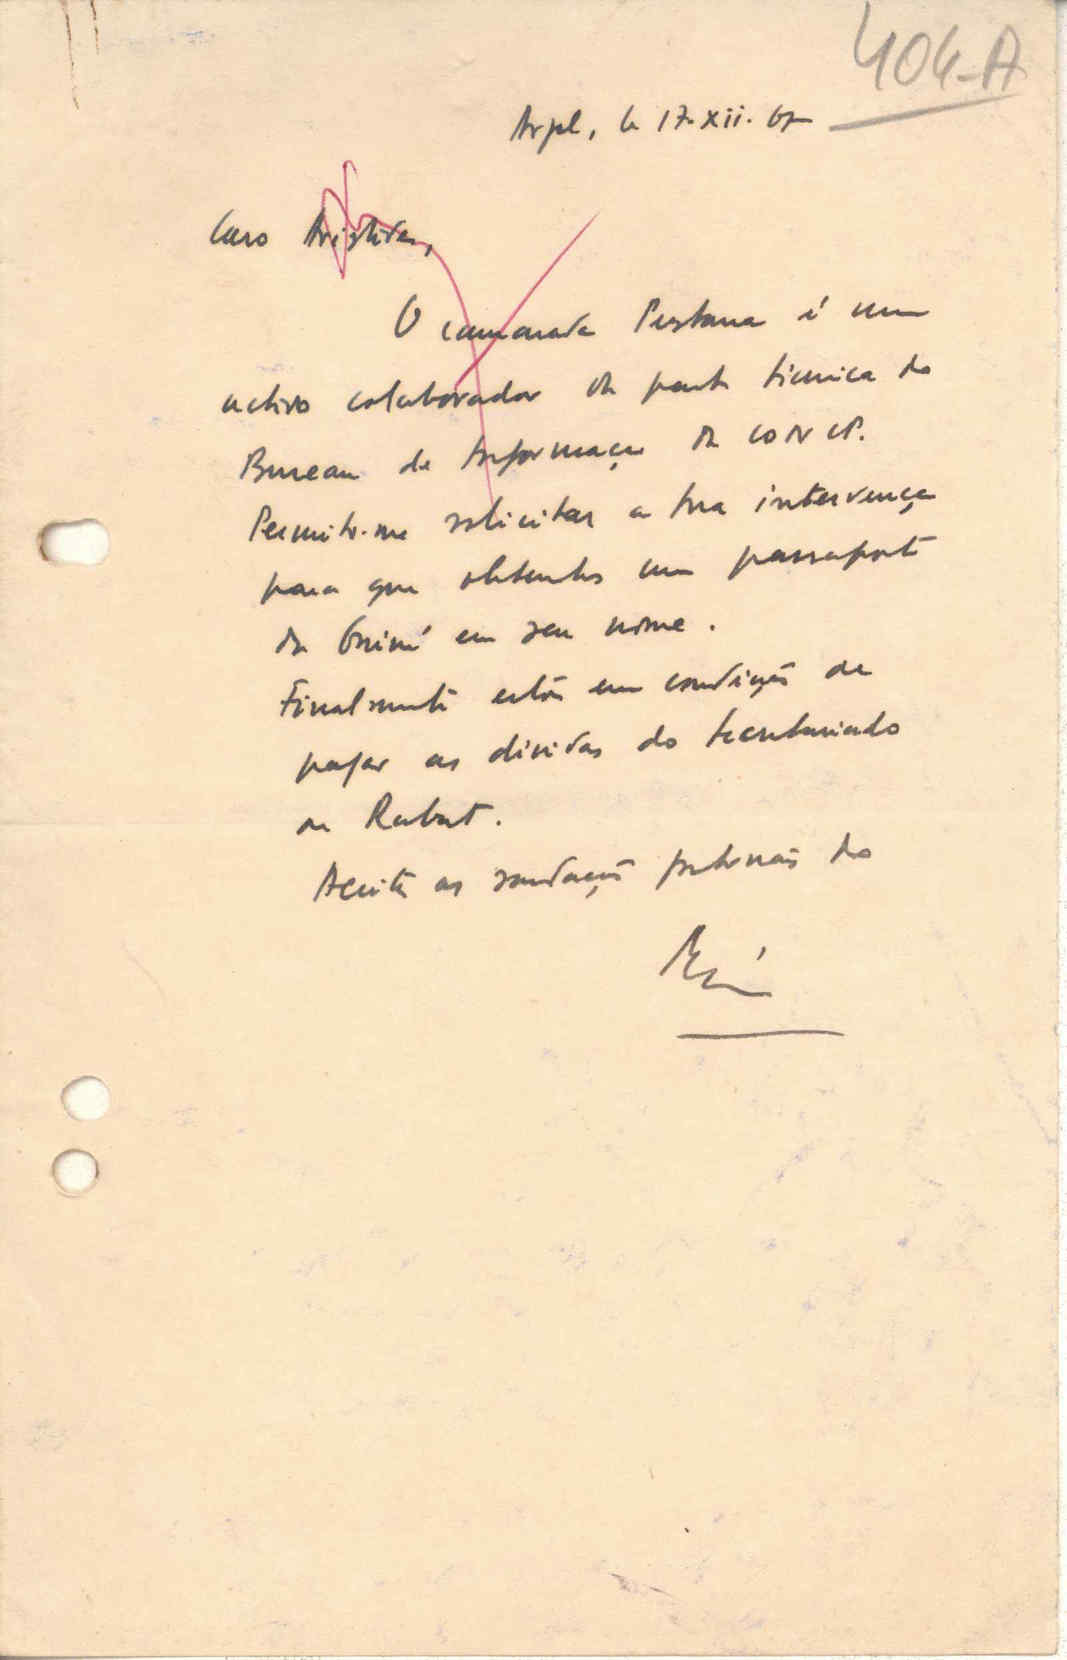 404-A
Argel, le 17.XII.65
Caro Aristides,
O camarada Pestana é um
activo colaborador da parte técnica do
Bureau de Informação da CONCP.
Permito-me solicitar a tua intervenção
para que obtenhas um passaporte
da Guiné em seu nome.
Finalmente estás em condições de
pagar as dívidas do Secretariado
de Rabat.
Aceita as saudações fraternais do